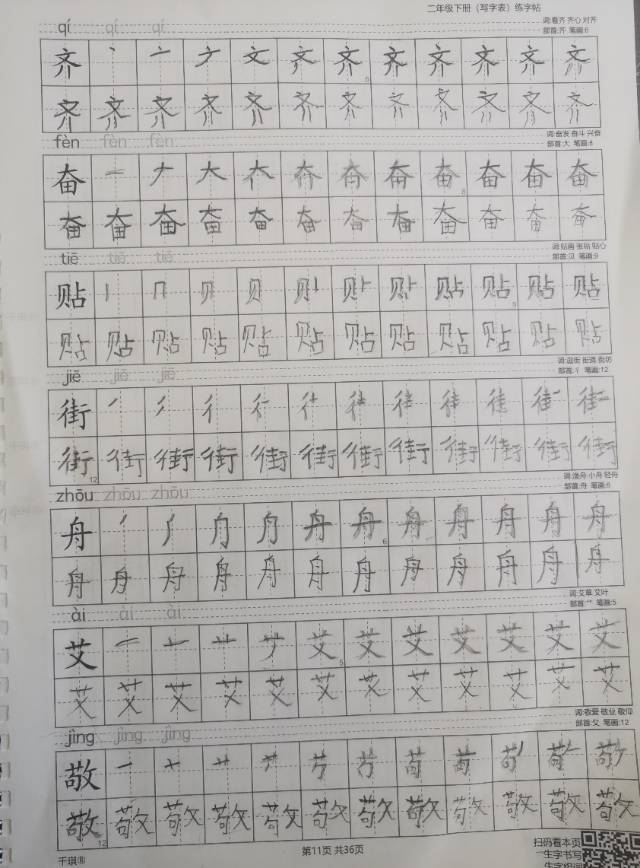 二年级下册（写字表）练字帖
qí qí qí 词:看齐 齐心 对齐
部首:齐 笔画:6
齐 丶 亠 文 齐 齐 齐 齐 齐 齐 齐
齐 齐 齐 齐 齐 齐 齐 齐 齐 齐 齐 齐
fèn fèn fèn 词:奋发 奋斗 兴奋
部首:大 笔画:8
奋 一 大 奋 奋 奋 奋 奋
奋 奋 奋 奋 奋 奋 奋 奋 奋 奋 奋 奋
tiē tiē tiē 词:贴画 张贴 贴心
部首:贝 笔画:9
贴 丨 冂 贝 贝 贴 贴 贴 贴
贴 贴 贴 贴 贴 贴 贴 贴 贴 贴 贴 贴
jiē jiē jiē 词:逛街 街道 街坊
部首:彳 笔画:12
街 丿 彳
街 街 街 街 街 街 街 街 街 街 街 街
zhōu zhōu zhōu 词:渔舟 小舟 轻舟
部首:舟 笔画:6
舟 丿 舟 舟 舟 舟 舟 舟 舟
舟 舟 舟 舟 舟 舟 舟 舟 舟 舟 舟 舟
ài ài ài 词:艾草 艾叶
部首:艹 笔画:5
艾 一 艹 艾 艾 艾 艾 艾 艾 艾
艾 艾 艾 艾 艾 艾 艾 艾 艾 艾 艾 艾
jìng jìng jìng 词:敬爱 敬业 敬仰
部首:攵 笔画:12
敬 一 艹 苟
敬 敬 敬 敬 敬 敬 敬 敬 敬 敬 敬 敬
千琪⑧ 第11页 共36页 扫码看本页
生字书写